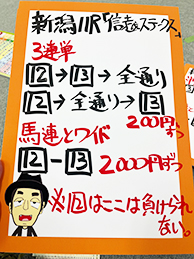 新潟11R「信越ステークス」
3連単
12→13→全通り
12→全通り→13
200円ずつ
馬連とワイド
12-13 2000円ずつ
※12はここは負けられない。